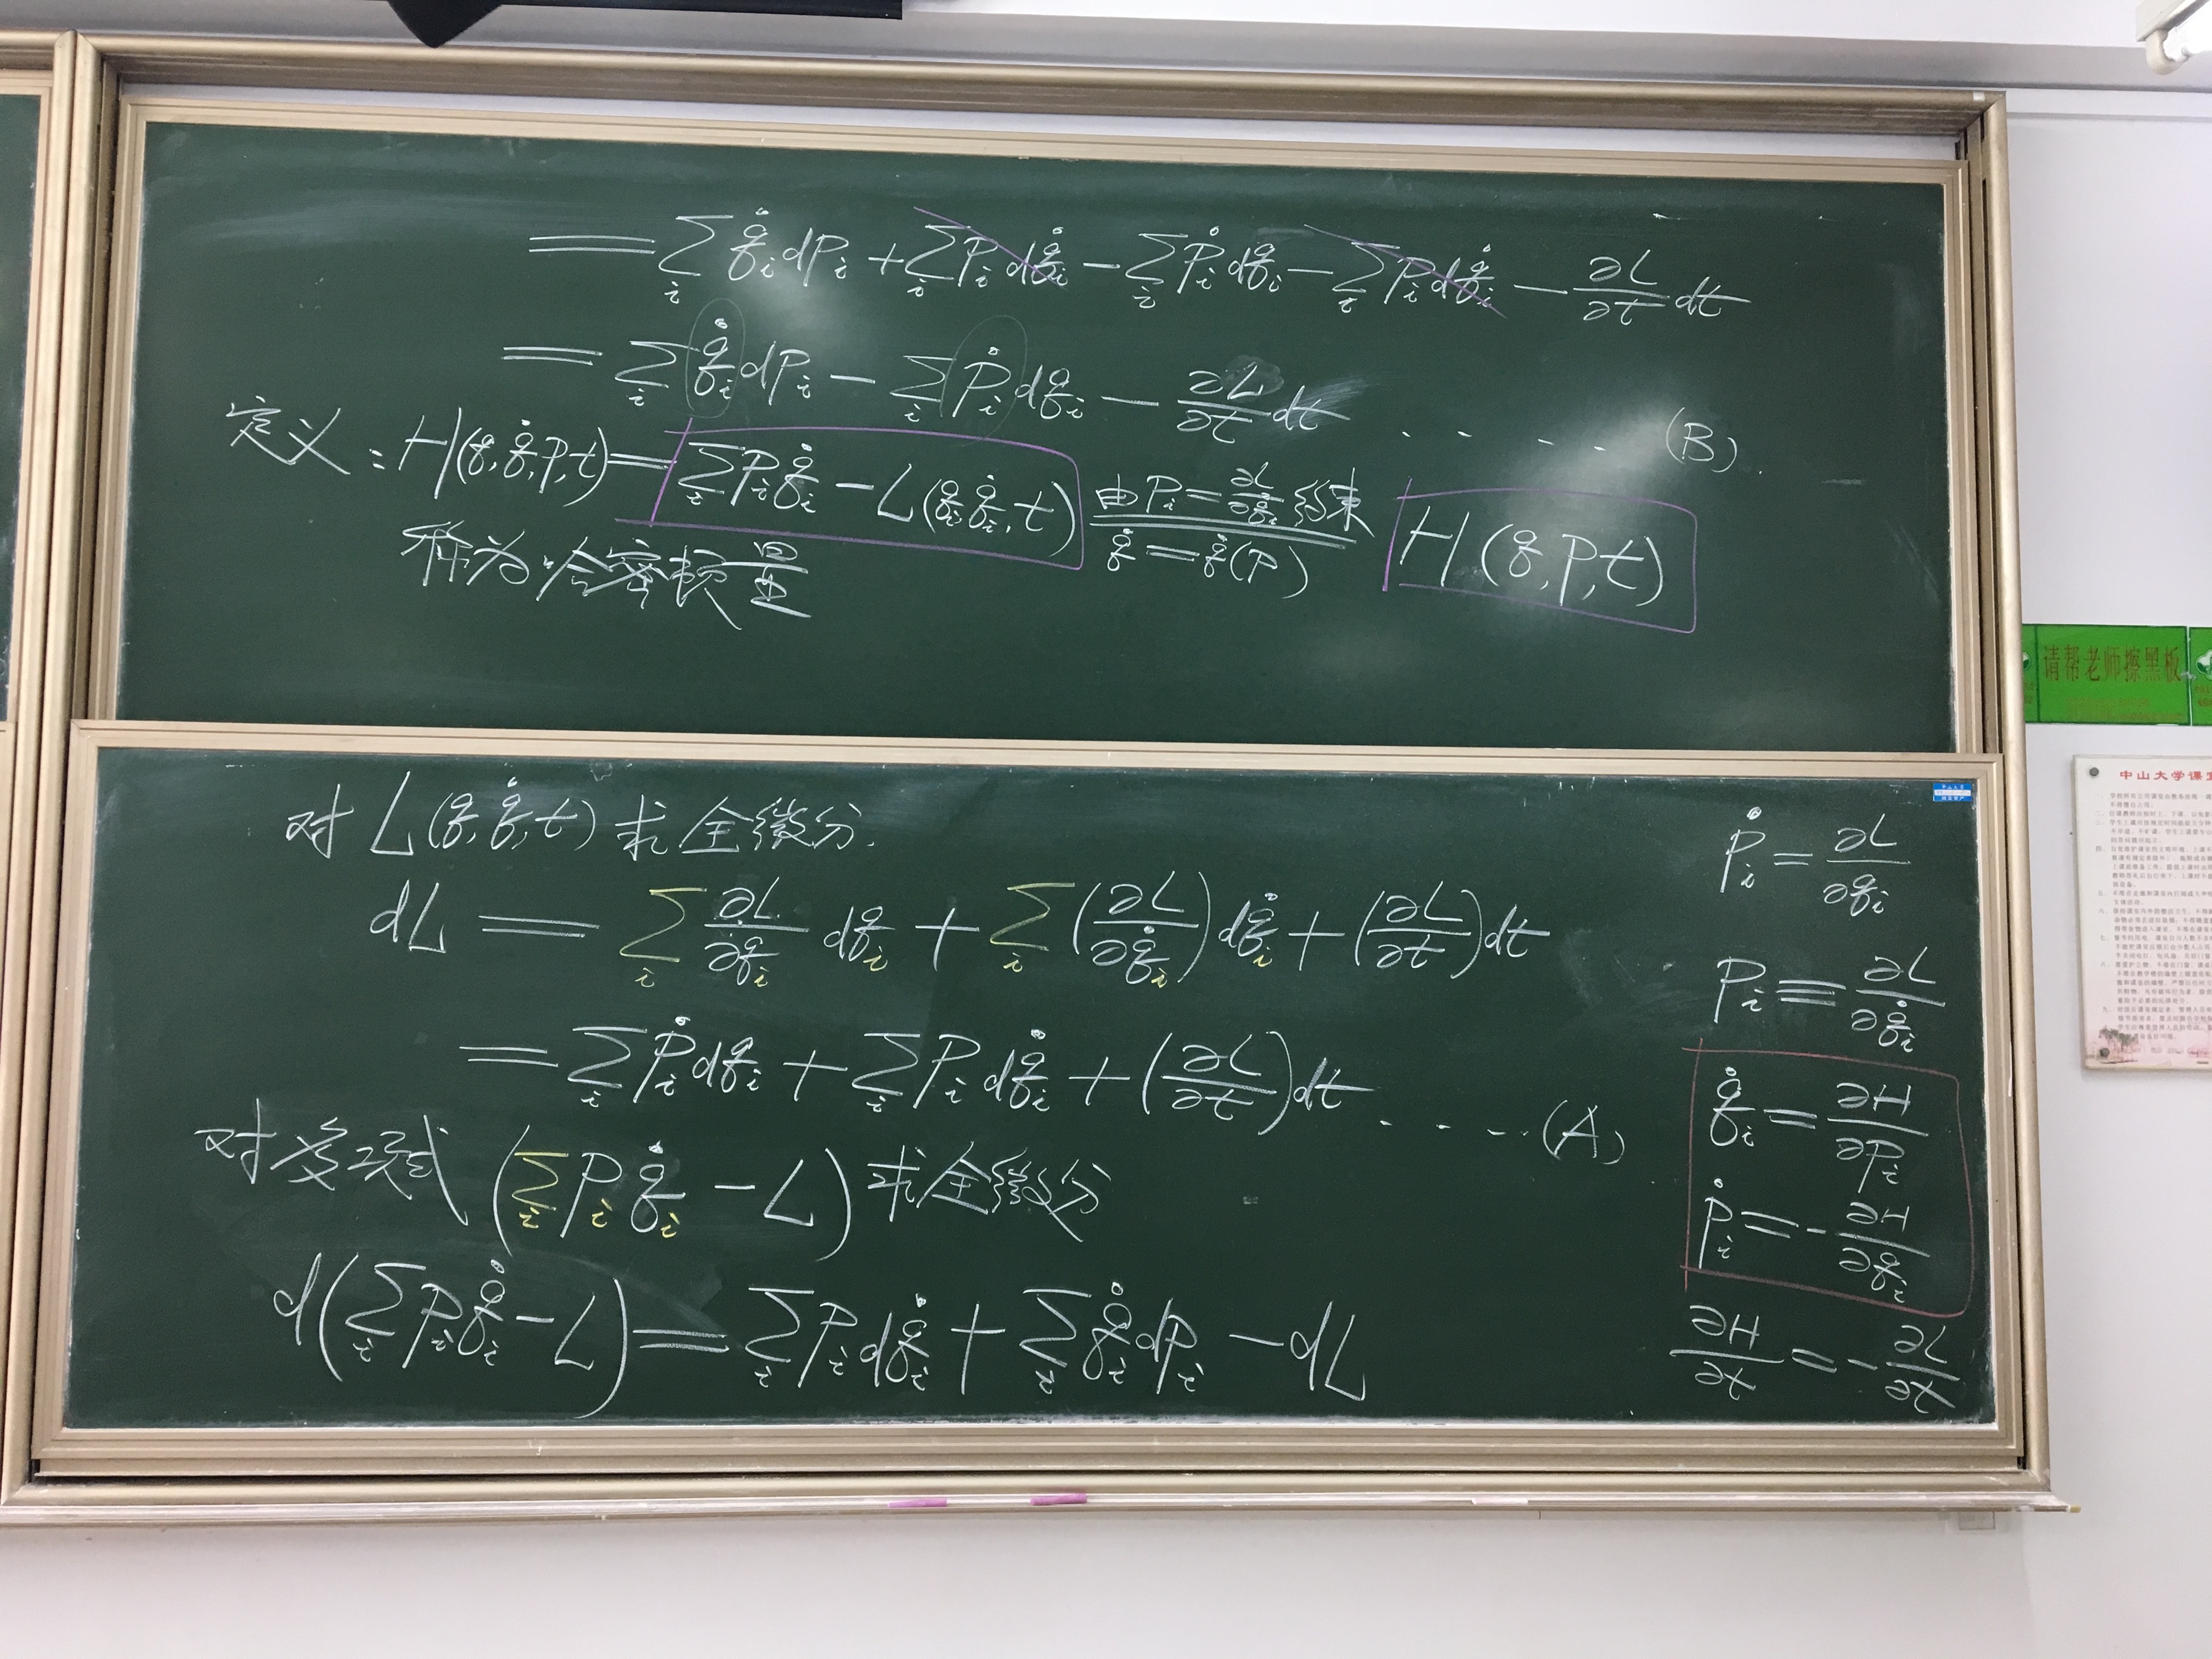 = ∑ᵢ q̇ᵢ dPᵢ + ∑ᵢ Pᵢ dq̇ᵢ − ∑ᵢ Ṗᵢ dqᵢ − ∑ᵢ Pᵢ dq̇ᵢ − ∂L/∂t dt
= ∑ᵢ q̇ᵢ dPᵢ − ∑ᵢ Ṗᵢ dqᵢ − ∂L/∂t dt ‥‥ (B).
定义: H(q, q̇, p, t) = ∑ᵢ Pᵢ q̇ᵢ − L(qᵢ, q̇ᵢ, t) 由 Pᵢ = ∂L/∂q̇ᵢ 约束 q̇ = q̇(P) H(q, p, t)
称为哈密顿量
对 L(q, q̇, t) 求全微分.
dL = ∑ᵢ ∂L/∂qᵢ dqᵢ + ∑ᵢ (∂L/∂q̇ᵢ) dq̇ᵢ + (∂L/∂t) dt
= ∑ᵢ Ṗᵢ dqᵢ + ∑ᵢ Pᵢ dq̇ᵢ + (∂L/∂t) dt ‥‥ (A)
对多项式 (∑ᵢ Pᵢ q̇ᵢ − L) 求全微分
d(∑ᵢ Pᵢ q̇ᵢ − L) = ∑ᵢ Pᵢ dq̇ᵢ + ∑ᵢ q̇ᵢ dpᵢ − dL
Ṗᵢ = ∂L/∂qᵢ
Pᵢ ≡ ∂L/∂q̇ᵢ
q̇ᵢ = ∂H/∂Pᵢ
Ṗᵢ = − ∂H/∂qᵢ
∂H/∂t = − ∂L/∂t
请帮老师擦黑板
中山大学课堂